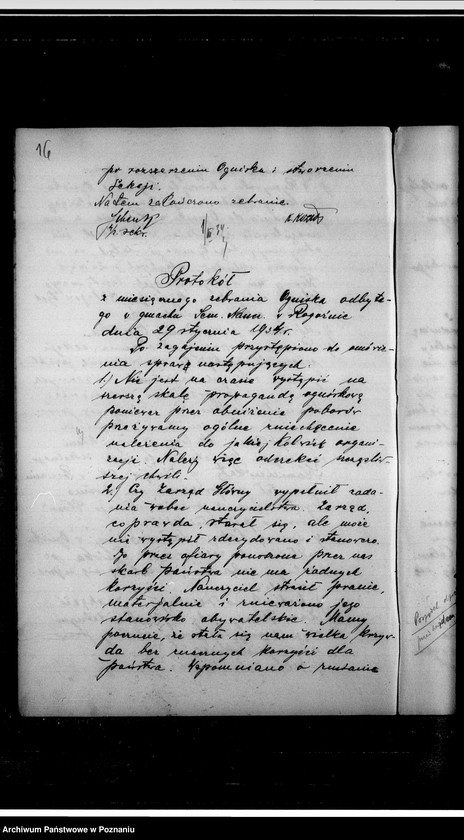 16
po rozszerzeniu Ogniska i stworzeniu
Sekcji.
Na tem zakończono zebranie.
Protokół
z miesięcznego zebrania Ogniska odbyte-
go w gmachu Sem. Naucz. w Rogoźnie
dnia 29 stycznia 1934r.
Po zagajeniu przystąpiono do omówie-
nia spraw następujących.
1.) Nie jest na czasie wystąpić na
szerszą skalę propagandą ogniskową
ponieważ przez obniżenie poborów
przeżywamy ogólne zniechęcenie
należenia do jakiejkolwiek organi-
zacji. Należy więc odczekać
szej chwili.
2.) Czy Zarząd Główny wypełnił zada-
nia wobec nauczycielstwa. Zarząd,
co prawda, starał się, ale może
nie wystąpił zdecydowanie i stanowczo.
To przez ofiary ponoszone przez nas
skarb państwa nie ma żadnych
korzyści. Nauczyciel stracił prawie,
materjalnie i znieważono jego
stanowisko obywatelskie. Mamy
poczucie, że stała się nam wielka krzyw-
da bez znacznych korzyści dla
państwa. Wspomniano o
Archiwum Państwowe w Poznaniu